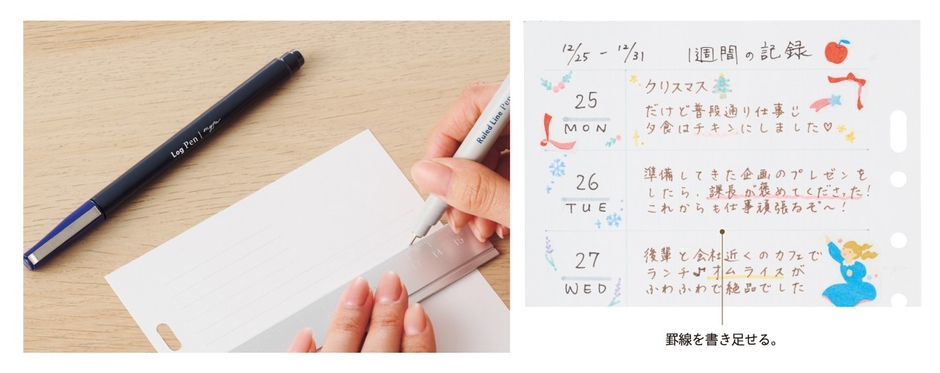 Log Pen
Ruled Line Pen
12/25 - 12/31 1週間の記録
25
MON
クリスマス
だけど普段通り仕事
夕食はチキンにしました♡
26
TUE
準備してきた企画のプレゼンを
したら、課長が褒めてくださった!
これからも仕事頑張るぞ〜!
27
WED
後輩と会社近くのカフェで
ランチ♪オムライスが
ふわふわで絶品でした
罫線を書き足せる。